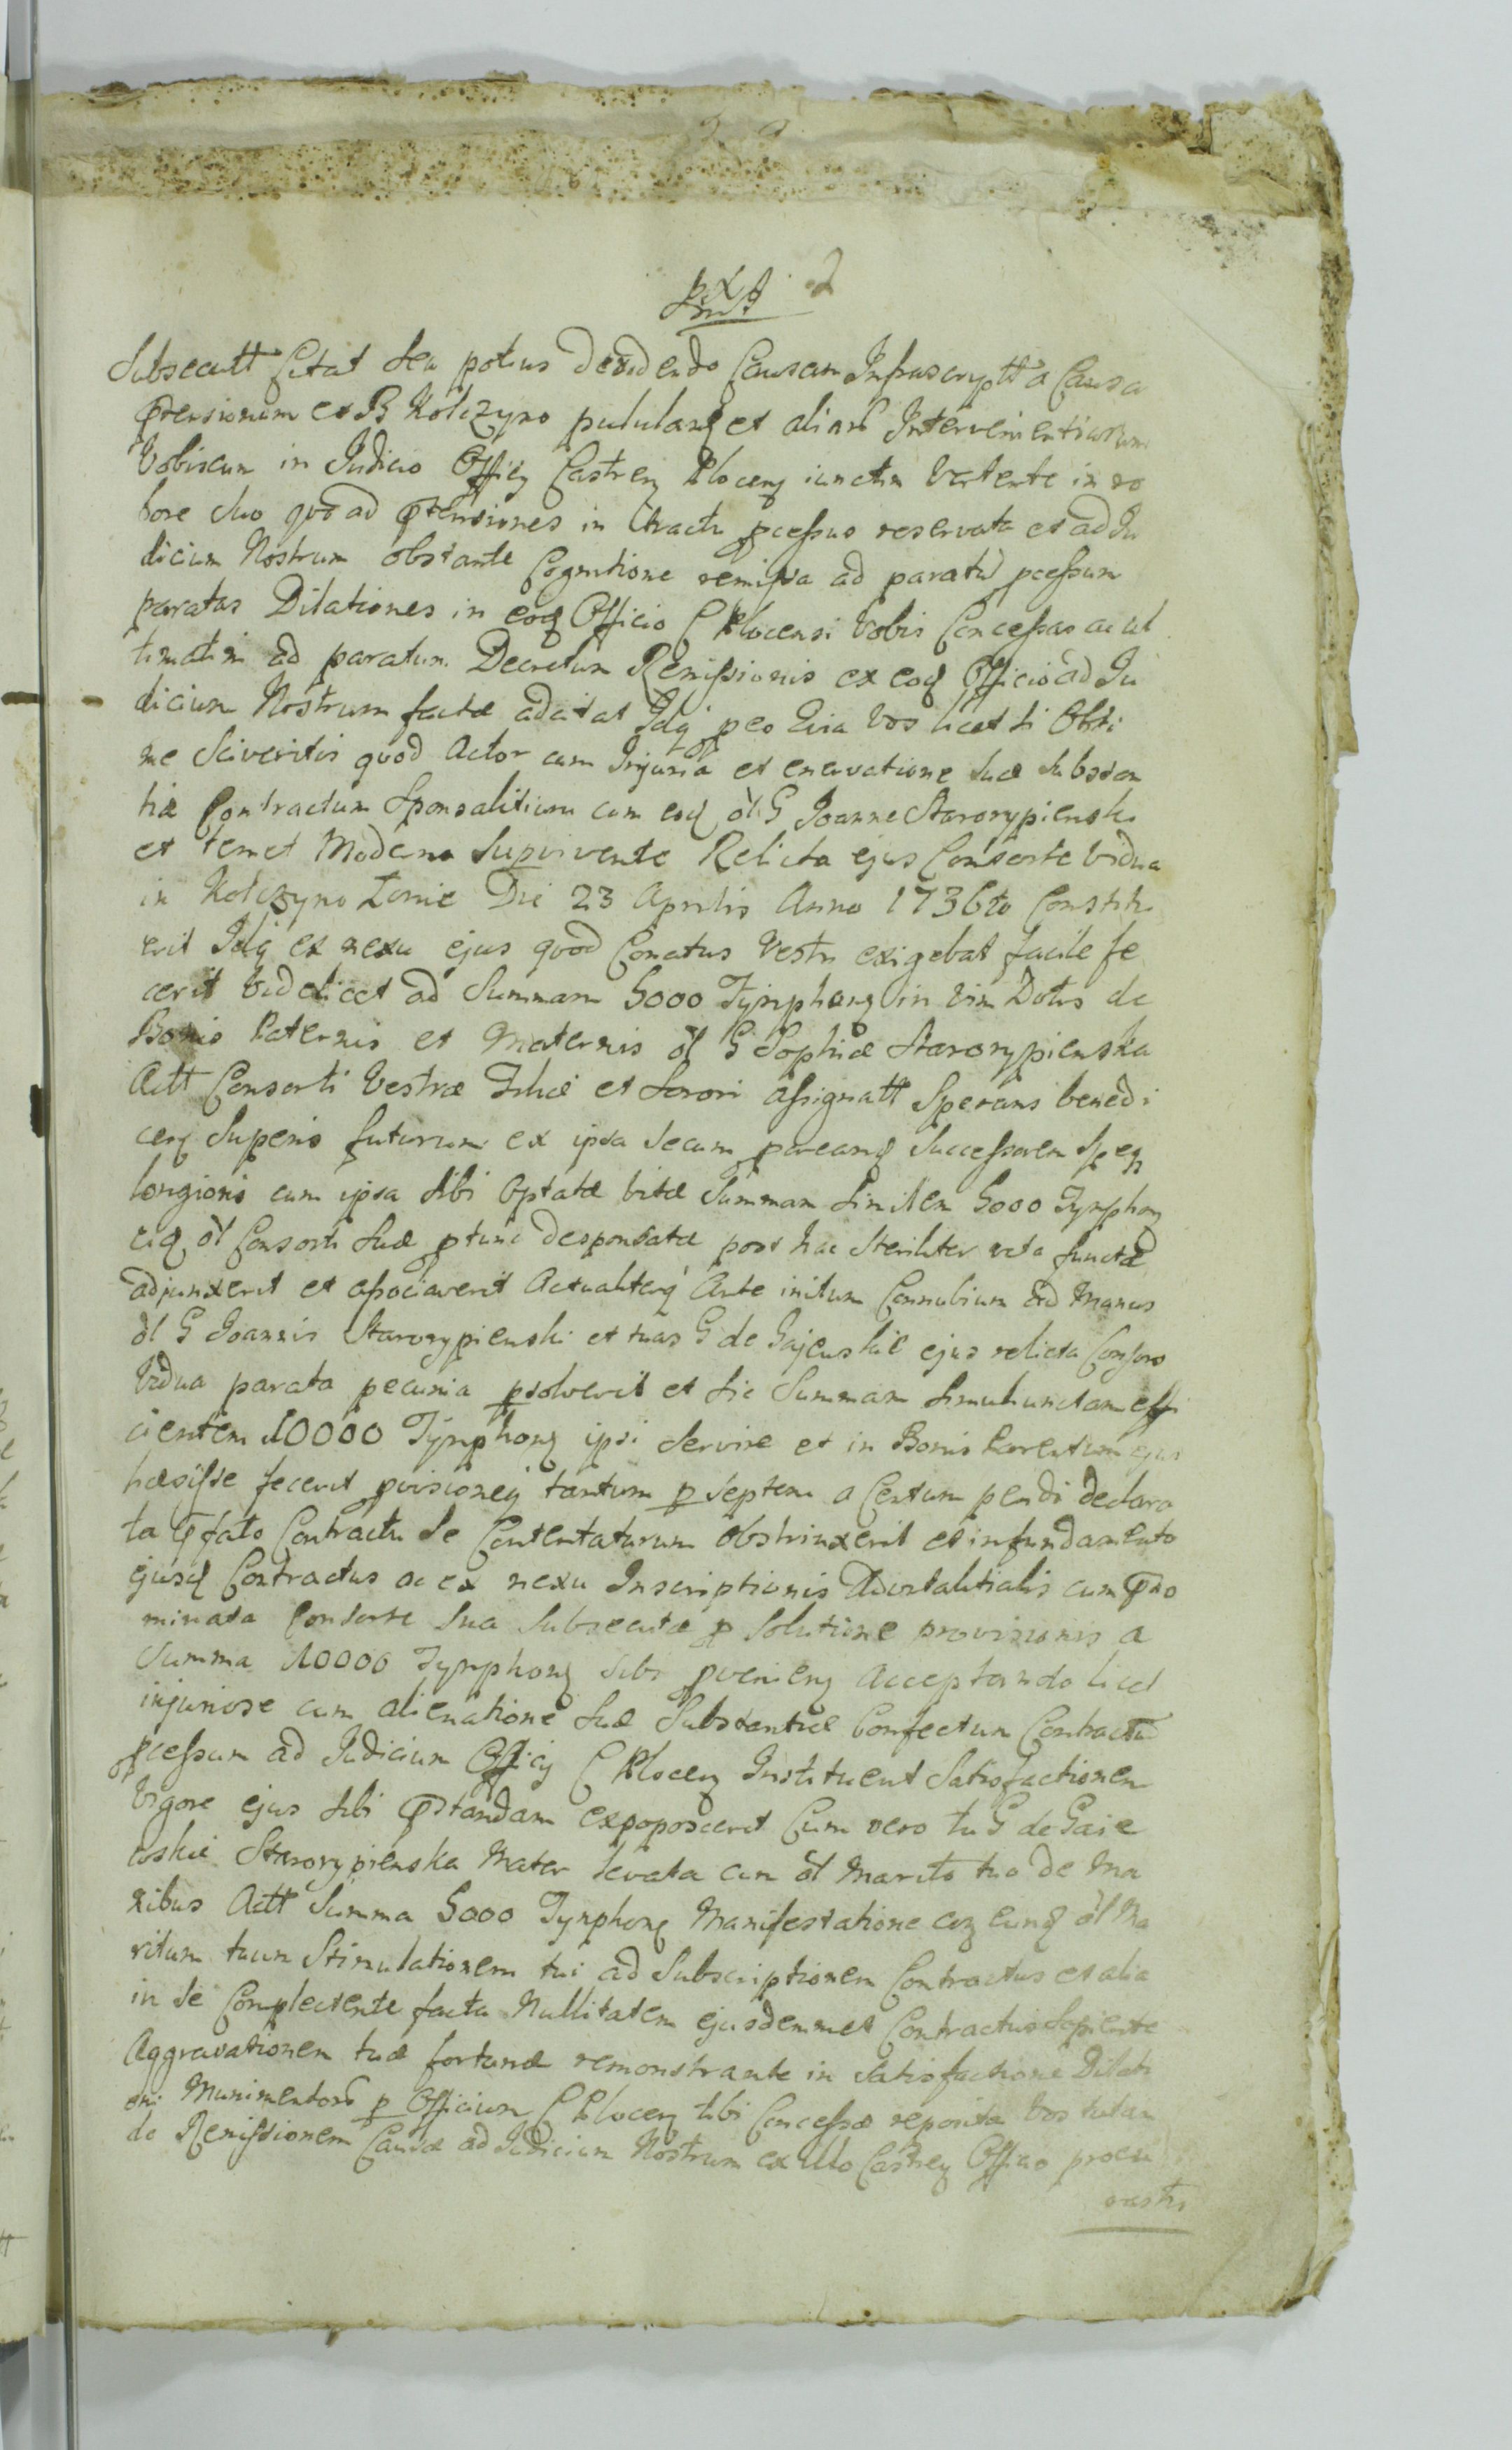 Subsecutt Citat seu potius decidendo Causam Infrascriptt a Causa
Ptensionum ex B Kolczyno pululanq et aliarũ Intervenientiarum
Vobiscum in Judicio Officy Castrenq Plocenq iunctim Vertente in ro
bore suo quo ad Ptensiones in tractu pcessus reservata et ad Ju
dicium Nostrum obstante Cognitione remissa ad paratũ pcessum
paratas Dilationes in eoq Officio C Plocensi Vobis Concessas ac ul
timatim ad paratum Decretum Remissionis ex eoq Officio ad Ju
dicium Nostrum factæ adcitat Idq peo Quia Vos licet si Opti
me Sciveritis quod Actor cum Injuria et enervatione suæ Substan
tiæ Contractum Sponsalitium cum eoq õl G Joanne Starorypienski
et temet Moderna Supervivente Relicta ejus Consorte Vidua
in Kolczyno Terræ Die 23 Aprilis Anno 1736to Constitu
erit Idq ex nexu ejus quod Conatus Vestri exigebat facile fe
cerit Videlicet ad Summam 5000 Tymphonq in Vim Dotis de
Bonis Paternis et Maternis õl G Sophiæ Starorypienska
Actt Consorti Vestræ Filiæ et Sorori assignatt Sperans benedi
cenq Superis futurum ex ipsa secum pcreanq Successorem Speq
longioris cum ipsa sibi Optatæ vitæ Summam similem 5000 Tymphonq
eiq õl Consorti suæ ptunc desponsatæ post hac steriliter vita functæ
adjunxerit et associaverit Actualiterq Ante initum Connubium ad Manus
õl G Joannis Starorypienski et tuas G de Gajewskie ejus relicta Consors
Vidua parata pecunia psolverit et sic Summam simul unctam effi
cientem 10000 Tymphonq ipsi servire et in Bonis Parentum ejus
hæsisse fecerit pvisioneq tantum p septem a Centum pendi declara
ta Pfato Contractu se Contentaturum Obstrinxerit et in fundamento
ejusq Contractus ac ex nexu Inscriptionis Advitalitialis cum Pno
minata Consorte sua Subsecutæ p Solutione provisionis a
Summa 10000 Tymphonq sibi pvenienq Acceptando licet
injuriose cum alienatione suæ Substantiæ Confectum Contractũ
pcessum ad Judicium Officy C Plocenq Instituent Satisfactionem
Vigore ejus sibi Pstandam expoposcerit Cum vero tu G de Gaie
wskie Starorypienska Mater levata cum õl Marito tuo de Ma
nibus Actt Summa 5000 Tymphonq Manifestatione coq eunq õl Ma
ritum tuum Stimulationem tui ad Subscriptionem Contractus et alia
in se Complectente facta Nullitatem ejusdemmet Contractus
Aggravationem tuæ fortunæ remonstrante in Satisfactione Dilati
oni Munimentorũ p Officium C Plocenq tibi Concessæ reposita Vos tutan
do Remissionem Causæ ad Judicium Nostrum ex illo Castrenq Officio procu
rastis